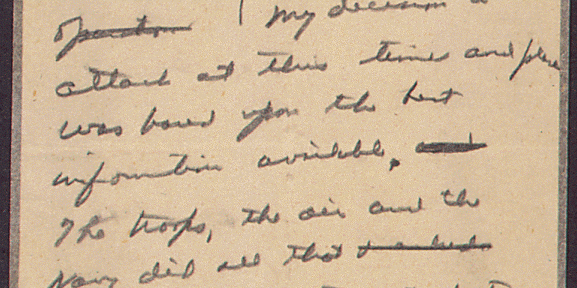 My decision to
attack at this time and place
was based upon the best
information available.
The troops, the air and the
Navy did all that